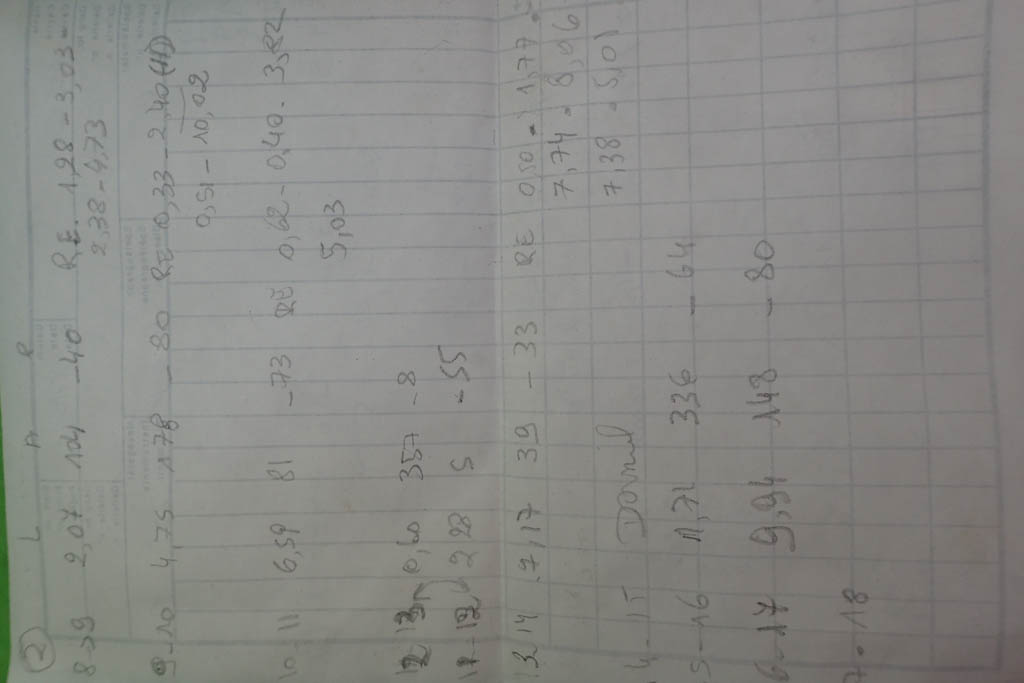 2 L A P
8→9 2,07 104 -40 RE. 1,28 - 3,03 -
2,38 - 4,73
9-10 4,75 178 -80 RE 0,33 - 2,40 (H)
0,51 - 10,02
10-11 6,59 81 -73 RE 0,62 - 0,40. 3,82
5,03
12-13 0,60 357 -8
11-12 2,28 5 -55
13 14 7,17 39 -33 RE 0,50 - 1,77.
7,74. 8,06
7,38. 5,01
4-15
5-16 1,71 336 -64
6-17 9,94 148 -80
7-18